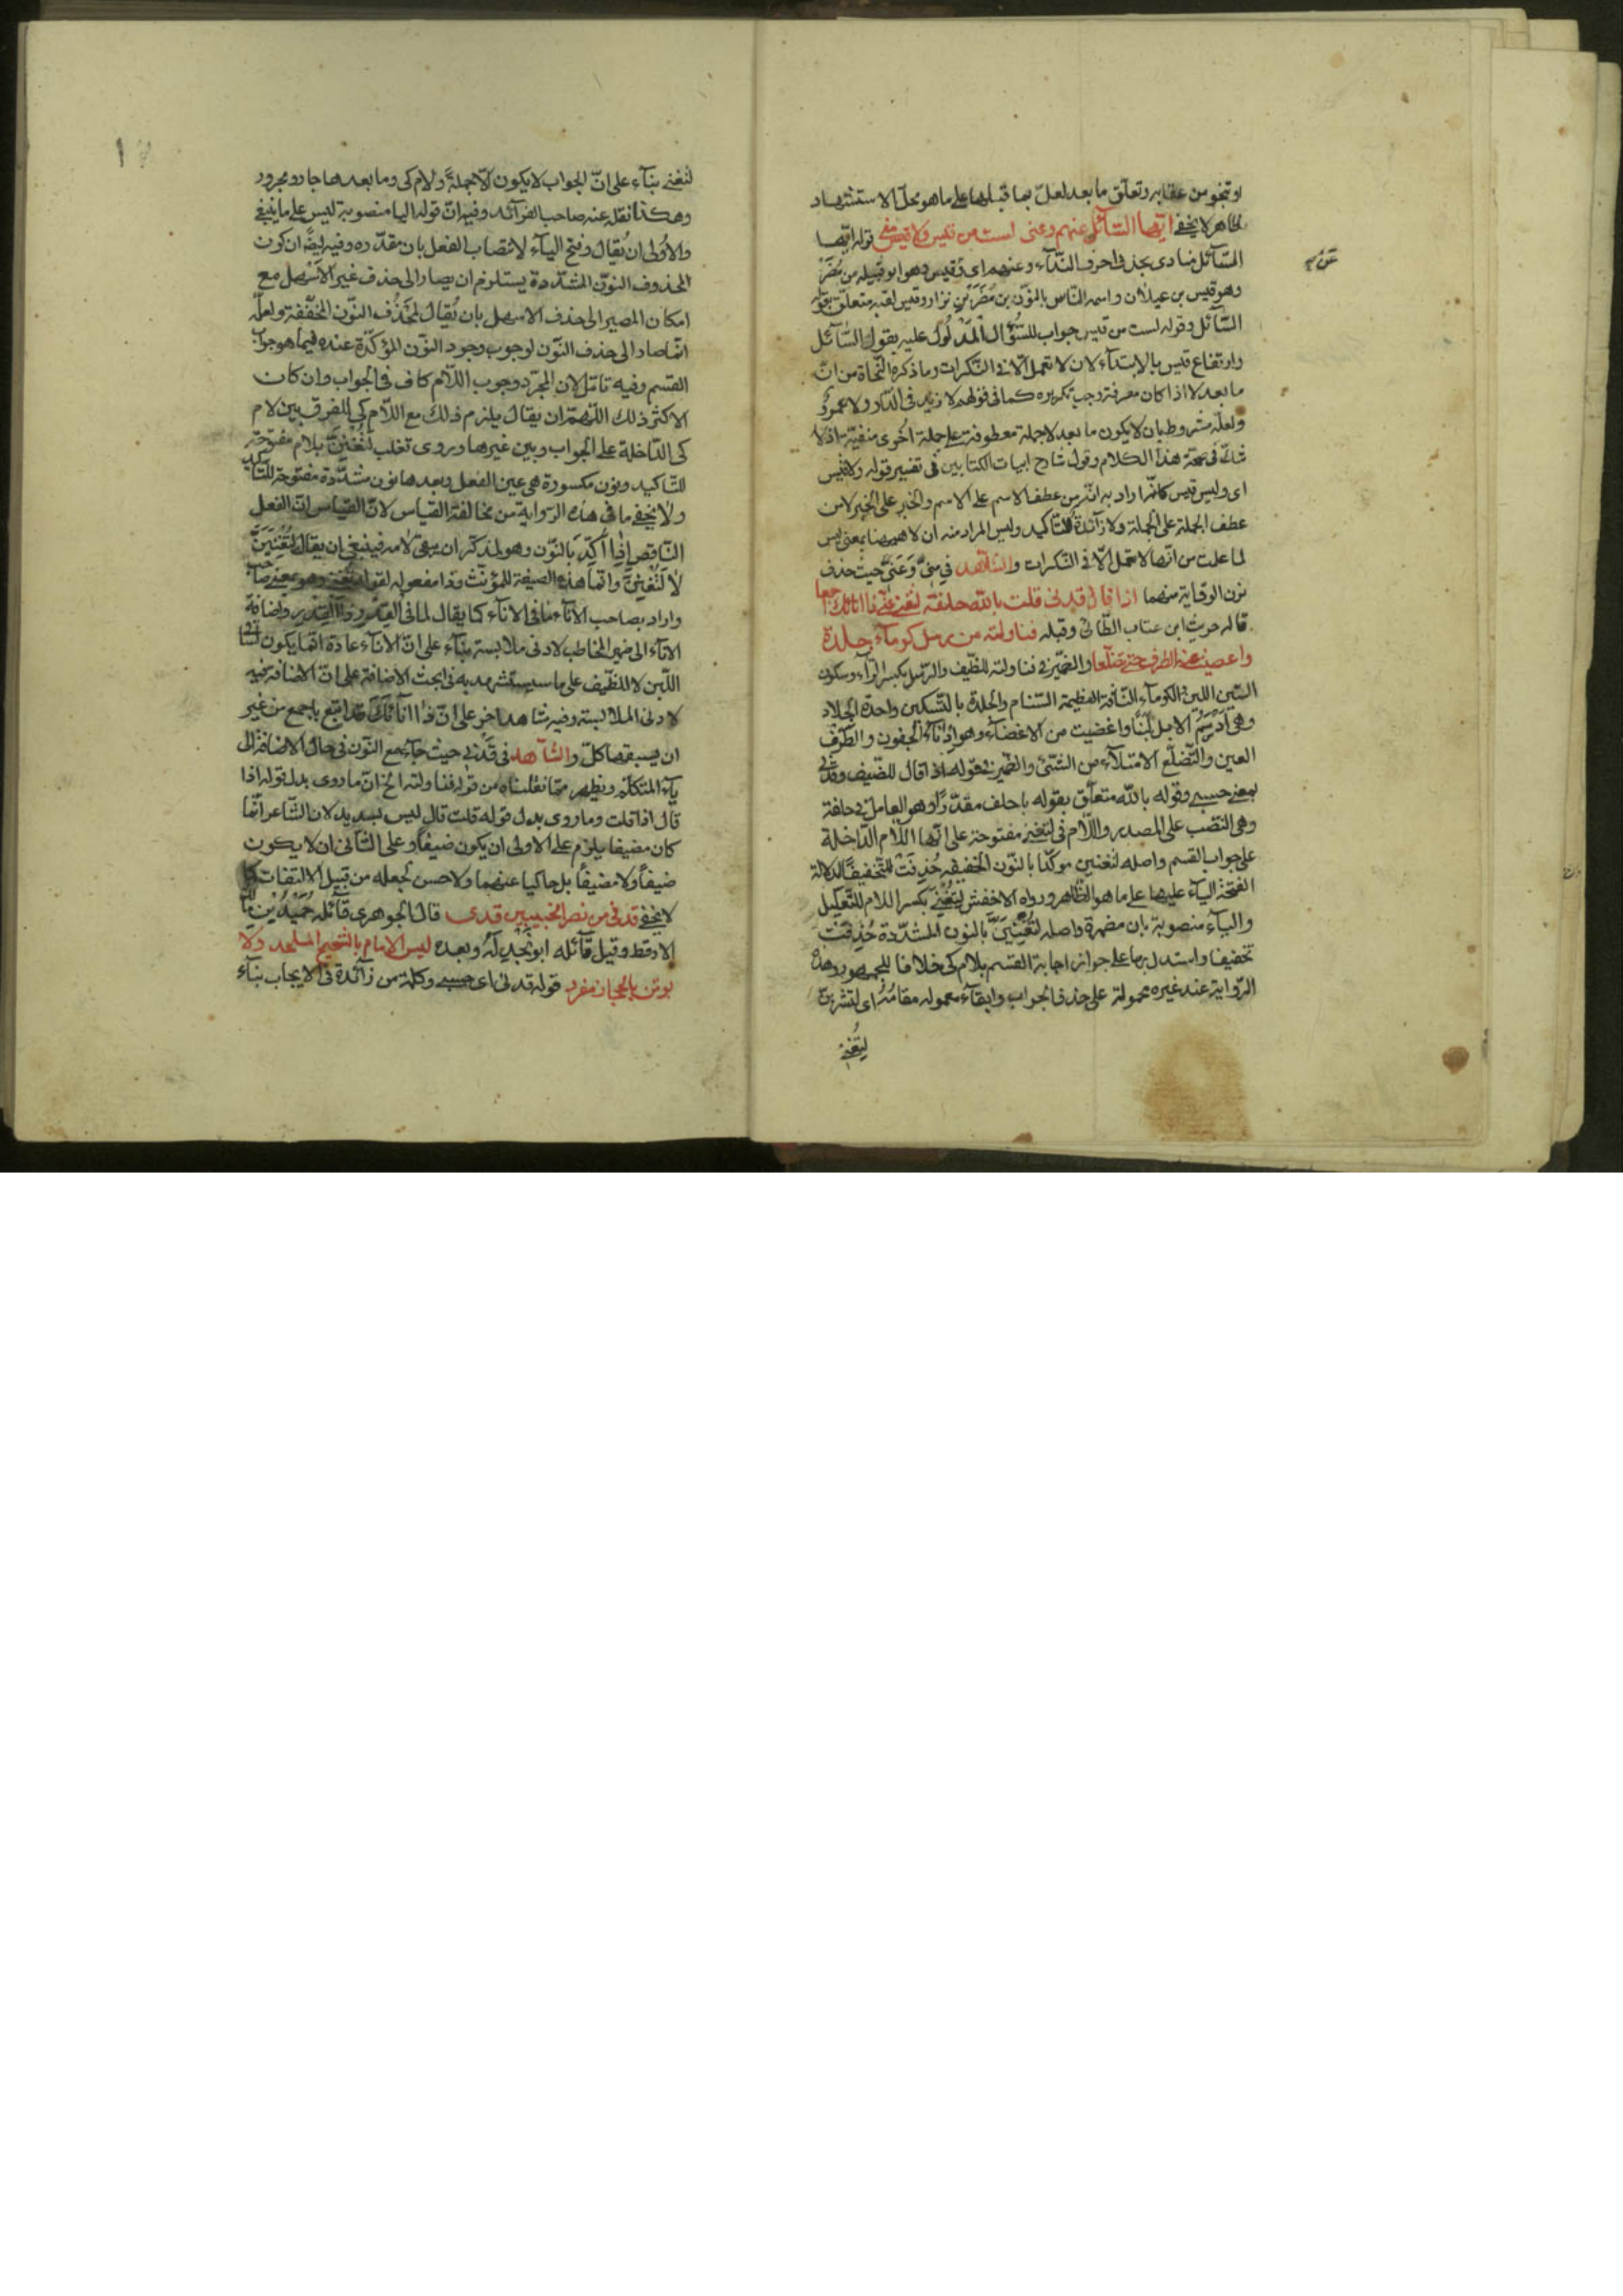 او تنجو من عقابه وتعلّق ما بعد لعلّ بها قبلها على ما هو محلّ الاستشهاد
ظاهر لا يخفى ايّها السّائل عنهم وعنى لست من قيس ولا قيس منى قوله ايّها
السّائل منادى بحذف احرف النّدآء وعنهم اى وقيس وهو ابو قبيله من مُضَرْ
وهو قيس بن عيلان واسمه النّاس بالنّون بن مُضَرَ بْنِ نزار وقيس لقبه متعلّق بقوله
السّآئل وقوله لست من قيس جواب للسُّؤال الْمَدْلُول عليه بقوله السّآئل
وارتفاع قيس بالابتدآء لان لا تعمل الّا فى النّكرات وما ذكره النّحاة من انّ
ما بعد لا اذا كان معرفة وجب تكريره كما فى قولهم لا زيد فى الدّار ولا عمرو
ولعلّه مشروط بان لا يكون ما بعد لا جملة معطوفة على جملة اُخرى منفيّة اذ لا
شكّ فى صحّة هذا الكلام وقول شارح ابيات الكتابين فى تفسير قوله ولا قيس
اى وليس قيس كانّه اراد به انّه من عطف الاسم على الاسم والخبر على الخبر لا من
عطف الجملة على الجملة ولا زآئدة للتّاكيد وليس المراد منه ان لا ههنا بمعنى ليس
لما علمت من انّها لا تعمل الّا فى النّكرات والشّاهد فى مِنىْ وَعَنىْ حيث حذف
نون الوقاية منهما اذا قال قدنى قلت بالله حلفة لتغنى عنّى ذا انائك اجمعا
قاله حريث ابن عتاب الطّائى وقبله فناولته من رسل كومآء جلدة
واغضيت عنه الطرف حتى تضلّعا والضّمير فى فناولته للضّيف والرّسل بكسر الرّآء وسكون
السّين اللبن والكومآء النّاقة العظيمة السّنام والجلدة بالتّسكين واحدة الجلاد
وهى اَدْسَمُ الابل لَبَنًا واغضيت من الاغضآء وهو ادنآء الجفون والطّرف
العين والتّضلّع الامتلآء من الشّئ والضّمير فى قوله اذا قال للضّيف وقدنى
بمعنى حسبى وقوله بالله متعلّق بقوله باحلف مقدّرًا وهو العامل فى حلفة
وهى النّصب على المصدر واللّام فى لتغنى مفتوحة على انّها اللّام الدّاخلة
على جواب القسم واصله لتغنين موكّدا بالنّون الخفيفه حُذِفَتْ للتّخفيف لدلالة
الفتحة الياء عليها على ما هو الظّاهر ورواه الاخفش لِتُغْنِىَ بكسر اللام للتّعليل
والياء منصوبة بان مضمرة واصله لتُغْنِيَنَّ بالنون المشدّدة حُذِفَتْ
تخفيفا واستدل بها على جواز اجابة القسم بلام كى خلافا للجمهور وهذه
الرّواية عند غيره محمولة على حذف الجواب وابقآء معموله مقامَهُ اى لتشربنّ
لِتُغْنِىَ
لتغنى بنآء على انّ الجواب لا يكون الّا جملةً ولام كى وما بعدها جار ومجرور
وهكذا نقله عنه صاحب الفرآئد وفيه انّ قوله اليا منصوبة ليس على ما ينبغى
والاَولى ان يُقال وفتح اليآء لانتصاب الفعل بان مقدّره وفيه ايضًا ان كون
المحذوف النّون المشدّدة يستلزم ان يصار الى حذف غير الاَسْهل مع
امكان المصير الى حذف الاسهل بان يُقال لحَذْف النّون المخفّفة ولعلّه
انّما صار الى حذف النّون لوجوب وجود النّون المؤكّدة عنده فيما هو جواب
القسم وفيه تامّل لان المجرّد وجوب اللّام كاف فى الجواب وان كان
الاكثر ذلك اللّهمّ ان يقال يلزم ذلك مع اللّام كى للفرق بين لام
كى الدّاخلة على الجواب وبين غيرها وروى ثعلب لَتُغْنِنَّ بلام مفتوحة
للتّاكيد ونون مكسورة هى عين الفعل وبعدها نون مشدّدة مفتوحة للتّاكيد
ولا يخفى ما فى هذه الرّواية من مخالفة القياس لانّ القياس انّ الفعل
النّاقص اِذَا اُكِّدَ بالنّون وهو لمذكّر ان يبقى لامه فينبغى ان يقال لَتُغْنِيَنَّ
لَا لَتُغْنِنَّ وانّما هذه الصيغة للمؤنّث وذا مفعوله لقوله لتغنى وهو بمعنى صاحب
واراد بصاحب الانآء ما فى الانآء كما يقال لما فى القدر ذو القدر واضافة
الانآء الى ضمير المخاطب لادنى ملابسة بنآء على انّ الانآء عادة انّما يكون لساقى
اللّبن لا للضّيف على ما سيستشهد به فى ابحث الاضافة على انّ الاضافة فيه
لادنى الملابسة وفيه شاهد اخر على انّ ذا انائك قد اتبع باجمع من غير
ان يسبقها كلّ والشّاهد فى قَدْنى حيث جآء مع النّون فى حال الاضافة الى
يآء المتكلّم ويظهر ممّا نقلناه من قوله فناولته الخ انّ ما روى بدل قوله اذا
قال اذا قلت وما روى بدل قوله قلت قال ليس بسديد لان الشّاعر انّما
كان مضيفا يلزم على الاولى ان يكون ضيفاً وعلى الثّانى ان لا يكون
ضيفاً ولا مضيفاً بل حاكيا عنهما ولا حسن لجعله من قبيل الالتفات كما
لا يخفى قدنى من نصر الخبيبين قدى قال الجوهرى قآئله حُمَيْدُ بْن مالك
الارقط وقيل قآئله ابو بَجْدلَة وبعده ليس الامام بالشّحيح الملحد ولا
بوتن بالحجاز مفرد قوله قدنى اى حسبى وكلمة من زآئدة فى الايجاب بنآء